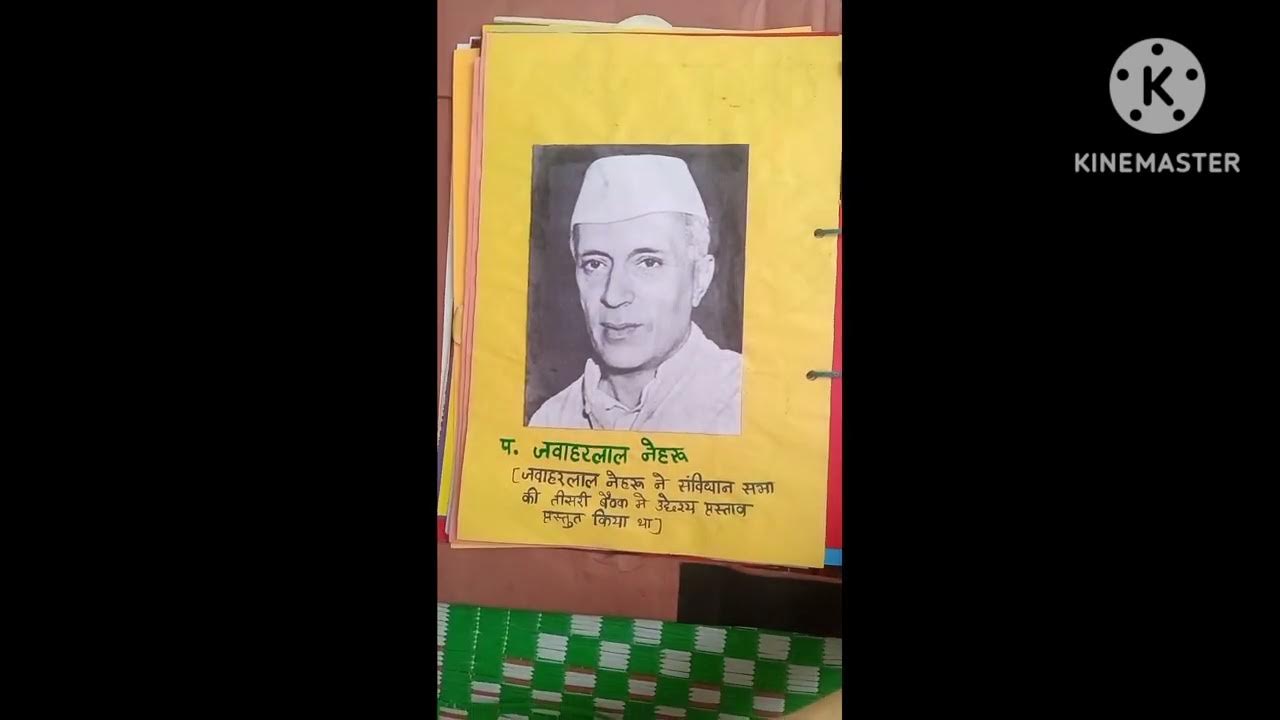 K
KINEMASTER
प. जवाहरलाल नेहरू
[जवाहरलाल नेहरू ने संविधान सभा
की तीसरी बैठक मे उद्देश्य प्रस्ताव
प्रस्तुत किया था]